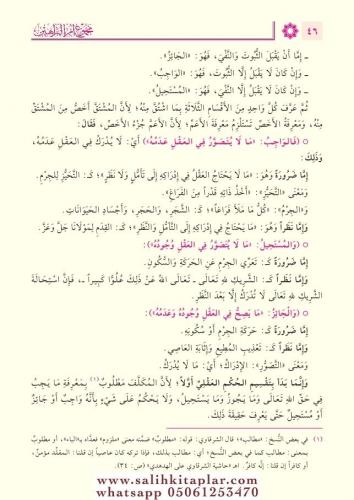 ٤٦
ـ إِمَّا أَنْ يَقْبَلَ الثُّبُوتَ وَالنَّفْيَ، فَهُوَ: «الْجَائِزُ».
ـ وَإِنْ كَانَ لَا يَقْبَلُ إِلَّا الثُّبُوتَ، فَهُوَ: «الْوَاجِبُ».
ـ وَإِنْ كَانَ لَا يَقْبَلُ إِلَّا النَّفْيَ، فَهُوَ: «الْمُسْتَحِيلُ».
ثُمَّ عَرَّفَ كُلَّ وَاحِدٍ مِنَ الْأَقْسَامِ الثَّلَاثَةِ بِمَا اشْتُقَّ مِنْهُ؛ لِأَنَّ الْمُشْتَقَّ أَخَصُّ مِنَ الْمُشْتَقِّ
مِنْهُ، وَمَعْرِفَةُ الْأَخَصِّ تَسْتَلْزِمُ مَعْرِفَةَ الْأَعَمِّ؛ لِأَنَّ الْأَعَمَّ جُزْءُ الْأَخَصِّ، فَقَالَ:
○ (فَالْوَاجِبُ: «مَا لَا يُتَصَوَّرُ فِي الْعَقْلِ عَدَمُهُ») أَيْ: لَا يُدْرَكُ فِي الْعَقْلِ عَدَمُهُ،
وَذَلِكَ:
إِمَّا ضَرُورَةً وَهُوَ: «مَا لَا يَحْتَاجُ الْعَقْلُ فِي إِدْرَاكِهِ إِلَى تَأَمُّلٍ وَلَا نَظَرٍ»؛ كَـ: التَّحَيُّزِ لِلْجِرْمِ.
وَمَعْنَى «التَّحَيُّزِ»: «أَخْذُ ذَاتِهِ قَدْراً مِنَ الْفَرَاغِ».
وَ«الْجِرْمُ»: «كُلُّ مَا مَلَأَ فَرَاغاً»؛ كَـ: الشَّجَرِ، وَالْحَجَرِ، وَأَجْسَادِ الْحَيَوَانَاتِ.
وَإِمَّا نَظَراً وَهُوَ: «مَا يَحْتَاجُ فِي إِدْرَاكِهِ إِلَى التَّأَمُّلِ وَالنَّظَرِ»؛ كَـ: الْقِدَمِ لِمَوْلَانَا جَلَّ وَعَزَّ.
○ (وَالْمُسْتَحِيلُ: «مَا لَا يُتَصَوَّرُ فِي الْعَقْلِ وُجُودُهُ»):
إِمَّا ضَرُورَةً كَـ: تَعَرِّي الْجِرْمِ عَنِ الْحَرَكَةِ وَالسُّكُونِ.
وَإِمَّا نَظَراً كَـ: الشَّرِيكِ لِلَّهِ تَعَالَى ـ تَعَالَى اللهُ عَنْ ذَلِكَ عُلُوًّا كَبِيراً ـ، فَإِنَّ اسْتِحَالَةَ
الشَّرِيكِ لِلَّهِ تَعَالَى لَا تُدْرَكُ إِلَّا بَعْدَ النَّظَرِ.
○ (وَالْجَائِزُ: «مَا يَصِحُّ فِي الْعَقْلِ وُجُودُهُ وَعَدَمُهُ»):
إِمَّا ضَرُورَةً كَـ: حَرَكَةِ الْجِرْمِ أَوْ سُكُونِهِ.
وَإِمَّا نَظَراً كَـ: تَعْذِيبِ الْمُطِيعِ وَإِثَابَةِ الْعَاصِي.
وَمَعْنَى «التَّصَوُّرِ»: الْإِدْرَاكُ؛ أَيْ: مَا لَا يُدْرَكُ.
وَإِنَّمَا بَدَأَ بِتَقْسِيمِ الْحُكْمِ الْعَقْلِيِّ أَوَّلاً؛ لِأَنَّ الْمُكَلَّفَ مَطْلُوبٌ(١) بِمَعْرِفَةِ مَا يَجِبُ
فِي حَقِّ اللهِ تَعَالَى وَمَا يَجُوزُ وَمَا يَسْتَحِيلُ، وَلَا يَحْكُمُ عَلَى شَيْءٍ بِأَنَّهُ وَاجِبٌ أَوْ جَائِزٌ
أَوْ مُسْتَحِيلٌ حَتَّى يَعْرِفَ حَقِيقَةَ ذَلِكَ.
(١) في بعض النسخ: «مطالب»؛ قال الشرقاوي: قوله: «مطلوب» ضمَّنه معنى «ملزوم» فعدَّاه بـ«الباء»، أو مطلوبٌ
بمعنى: مطالب كما في بعض النسخ؛ أي: مطالب بذلك، فإذا تركه كان عاصياً إن قلنا: المقلد مؤمن،
أو كافراً إن قلنا: إنه كافرٌ. اهـ «حاشية الشرقاوي على الهدهدي» (ص: ٣٤).
www.salihkitaplar.com
whatsapp 05061253470